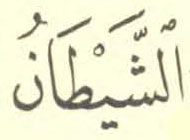 الْشَّيْطَانُ